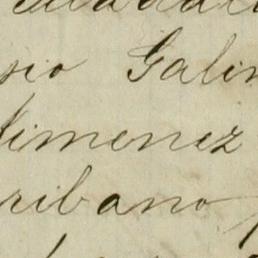 sio Galin
Jimenez
ribano